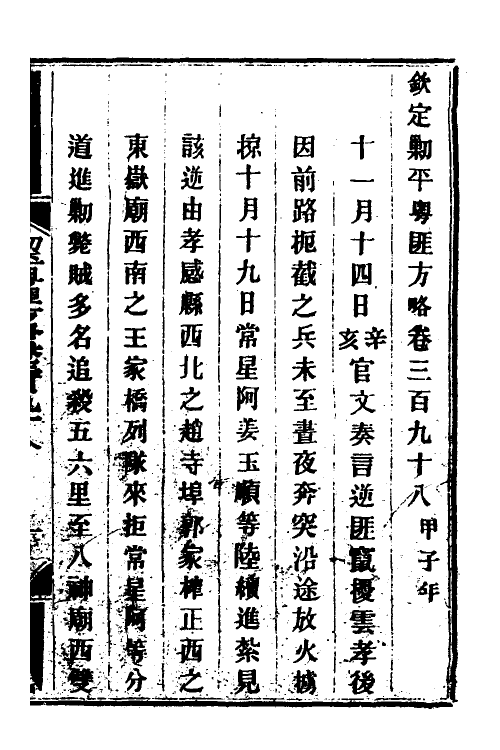 欽定剿平粵匪方略卷三百九十八 甲子年
十一月十四日辛亥官文奏言逆匪竄擾雲孝後
因前路扼截之兵未至晝夜奔突沿途放火擄
掠十月十九日常星阿姜玉順等陸續進紮見
該逆由孝感縣西北之趙寺埠郭家棒正西之
東嶽廟西南之王家橋列隊來拒常星阿等分
道進剿斃賊多名追殺五六里至八神廟西雙